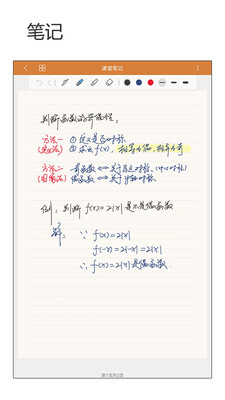 笔记
课堂笔记
判断函数的奇偶性:
方法一 ① 定义域是否对称
(定义法) ② 求出f(x), 相等为偶, 相异为奇
方法二 奇函数 ⟷ 关于原点对称
(图像法) 偶函数 ⟷ 关于y轴对称
例: 判断 f(x)=2|x| 是不是偶函数
解: ∵ f(x)=2|x|
f(-x)=2|-x|=2|x|
∴ f(x)=2|x| 是偶函数
第1页共2页